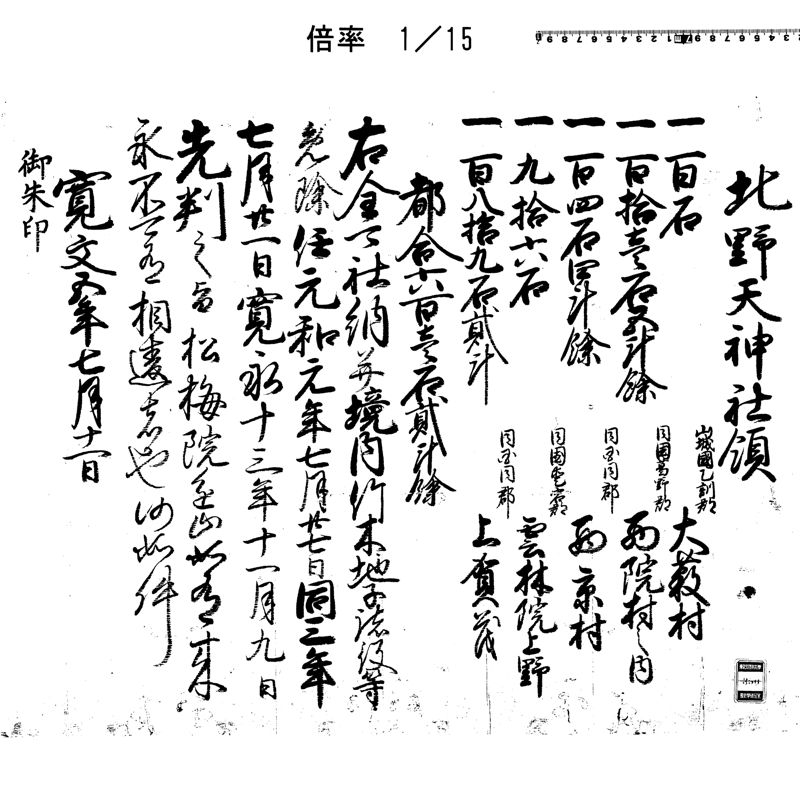 倍率 1/15
北野天神社領
一百石 山城國乙訓郡 大藪村
一百拾壹石五斗餘 同國葛野郡 西院村之内
一百四石四斗餘 同国同郡 西京村
一九拾六石 同國愛宕郡 雲林院上野
一百八拾九石貳斗 同国同郡 上賀茂
都合六百壹石貳斗餘
右全可社納并境内竹木地子諸役等
免除任元和元年七月廿七日同三年
七月廿一日寛永十三年十一月九日
先判之旨松梅院進止如有来
永不可有相違者也仍如件
寛文五年七月十一日
御朱印